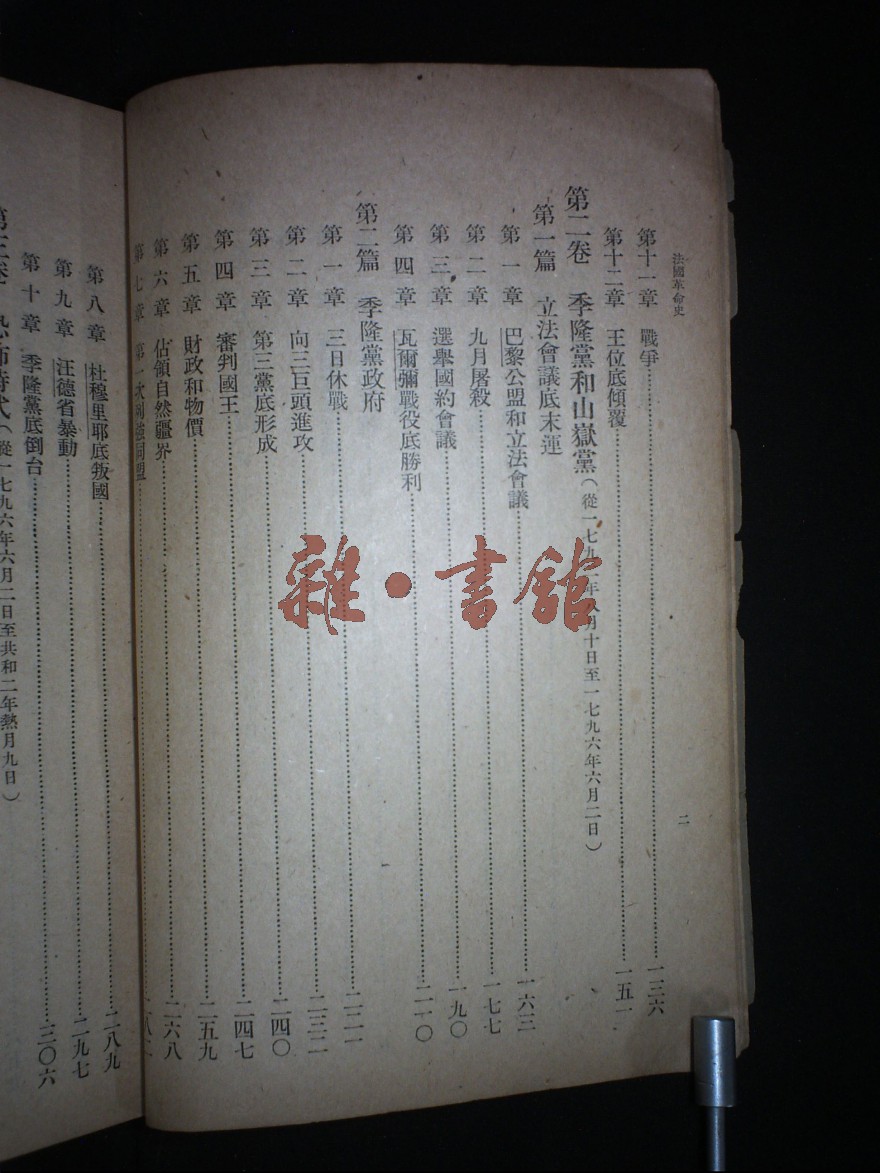 法國革命史
二
第十一章 戰爭……一三六
第十二章 王位底傾覆……一五一
第二卷 季隆黨和山嶽黨(從一七九二年八月十日至一七九六年六月二日)
第一篇 立法會議底末運
第一章 巴黎公盟和立法會議……一六三
第二章 九月屠殺……一七七
第三章 選舉國約會議……一九〇
第四章 瓦爾彌戰役底勝利……二一〇
第二篇 季隆黨政府
第一章 三日休戰……二二一
第二章 向三巨頭進攻……二三二
第三章 第三黨底形成……二四〇
第四章 審判國王……二四七
第五章 財政和物價……二五九
第六章 佔領自然疆界……二六八
第七章 第一次列強同盟……二八二
第八章 杜穆里耶底叛國……二八九
第九章 汪德省暴動……二九七
第十章 季隆黨底倒台……三〇六
第三卷 恐怖時式(從一七九六年六月二日至共和二年熱月九日)
雜·書館